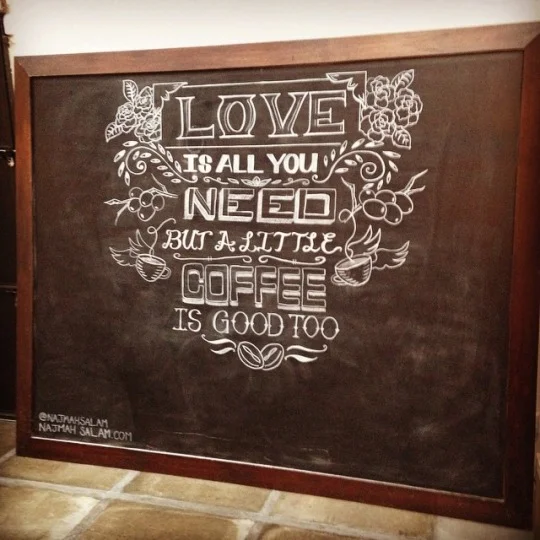 LOVE
IS ALL YOU
NEED
BUT A LITTLE
COFFEE
IS GOOD TOO
@NAJMAHSALAM
NAJMAH SALAM.COM